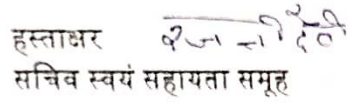 हस्ताक्षर देवी
सचिव स्वयं सहायता समूह